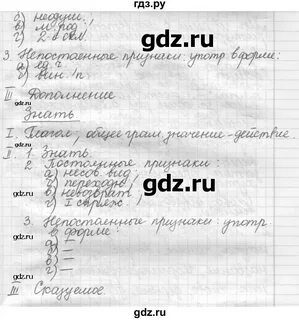 гдз.ру
б) неодуш.;
в) м. род;
г) 2-е скл.
3. Непостоянные признаки: употр. в форме:
а) ед. ч.
б) вин. п.
III Дополнение
Знать
I. Глагол, общее грам. значение - действие.
II. 1. Знать.
2. Постоянные признаки:
а) несов. вид;
б) переходн.
в) невозврат.
г) I спряж.;
3. Непостоянные признаки: употр.
в форме:
а) —
б) —
в) —
г) —
III Сказуемое.
gdz.ru
gdz.ru
gdz.ru
gdz.ru
gdz.ru
gdz.ru